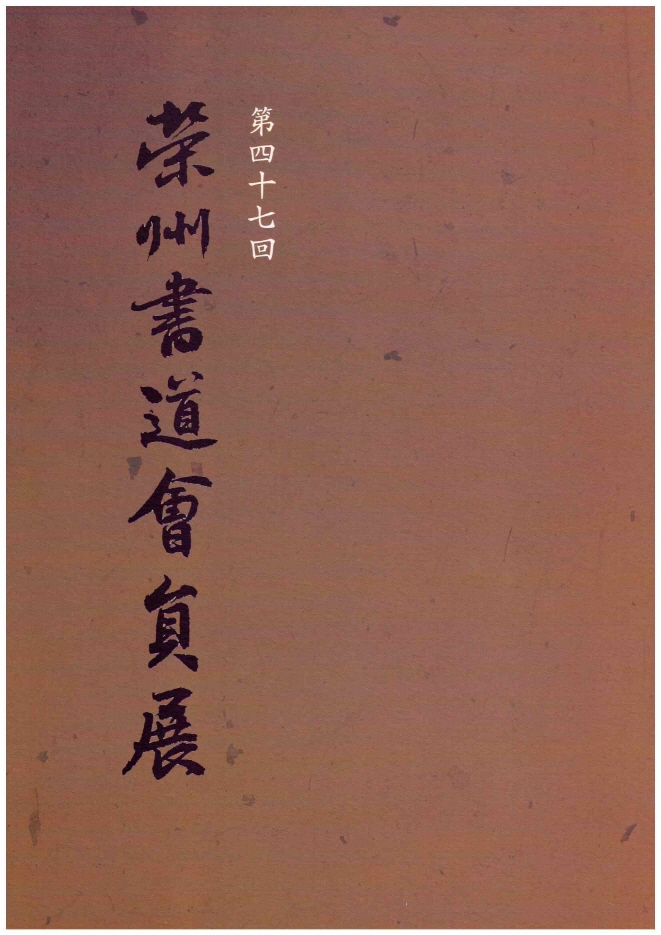 第四十七回
榮州書道會員展